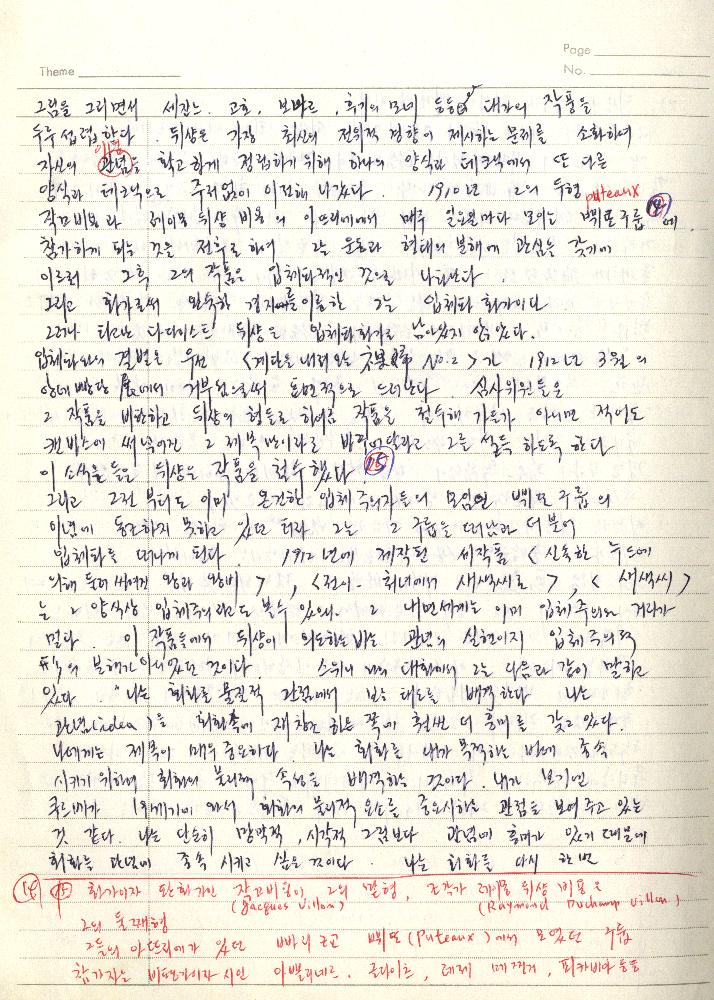 Page
Theme
No.
그림을 그리면서 세잔느, 고호, 보나르, 후기의 모네 등등의 대가의 작풍을
두루 섭렵한다. 뒤샹은 가장 최신의 전위적 경향이 제시하는 문제를 소화하여
자신의 관념을 확고하게 정립하기 위해 하나의 양식과 테크닉에서 또 다른
양식과 테크닉으로 주저없이 이전해 나갔다. 1910년 그의 두형 puteaux
작끄비용과 레이몽 뒤샹 비용의 아뜨리에에서 매주 일요일마다 모이는 뿨또 구룹 14 에
참가하게 되는 것을 전후로하여 그는 운동과 형태의 분해에 관심을 갖기에
이르러 그후 그의 작품은 입체파적인 것으로 나타난다.
그리고 화가로써 완숙한 경지를 이룩한 그는 입체파 화가이다
그러나 타고난 다다이스트 뒤샹은 입체파화가로 남아있지 않았다.
입체파와의 결별은 우선 <계단을 내려오는 裸婦 No.2>가 1912년 3월의
앙데빵당 展에서 거부됨으로써 표면적으로 드러난다. 심사위원들은
그 작품을 비판하고 뒤샹의 형들로 하여금 작품을 철수해 가든가 아니면 적어도
캔버스에 써넣어진 그 제목만이라로 바꿔달라고 그를 설득 하도록 한다
이 소식을 들은 뒤샹은 작품을 철수했다 15
그리고 그전 부터도 이미 온건한 입체주의자들의 모임인 뿨또 구룹의
이념에 동조하지 못하고 있던 터라 그는 그 구룹을 떠남과 더불어
입체파를 떠나게 된다. 1912년에 제작된 세작품 <신속한 누드에
의해 둘러 싸여진 왕과 왕비>, <전이. 처녀에서 새색씨로>, <새색씨>
는 그 양식상 입체주의라고도 볼수 있으나 그 내면세계는 이미 입체주의와 거리가
멀다. 이 작품들에서 뒤샹이 의도하는바는 관념의 실현이지 입체주의적
의 분해가 아니었던 것이다. 스위니 와의 대화에서 그는 다음과 같이 말하고
있다. "나는 회화를 물질적 관점에서 보는 태도를 배격한다. 나는
관념(idea)을 회화속에 재창조 하는 쪽에 훨씬 더 흥미를 갖고 있다.
나에게는 제목이 매우 중요하다. 나는 회화를 내가 목적하는 바에 종속
시키기 위하여 회화의 물리적 속성을 배격하는 것이다. 내가 보기엔
쿠르베가 19세기에 와서 회화의 물리적 요소를 중요시하는 관점을 보여주고 있는
것 같다. 나는 단순히 망막적, 시각적 그림보다 관념에 흥미가 있기 때문에
회화를 관념에 종속 시키고 싶은 것이다. 나는 회화를 다시 한번
14 화가이자 판화가인 작끄비용이 그의 맏형, 조각가 레이몽 뒤샹 비용은
(Jacques Villon) (Raymond Duchamp Villon)
그의 둘째형
그들의 아뜨리에가 있던 빠리 근교 뿨또(Puteaux)에서 모였던 구룹
참가자는 비평가이자 시인 아뽈리네르, 글라이즈, 레제, 메찡거, 피카비아 등등